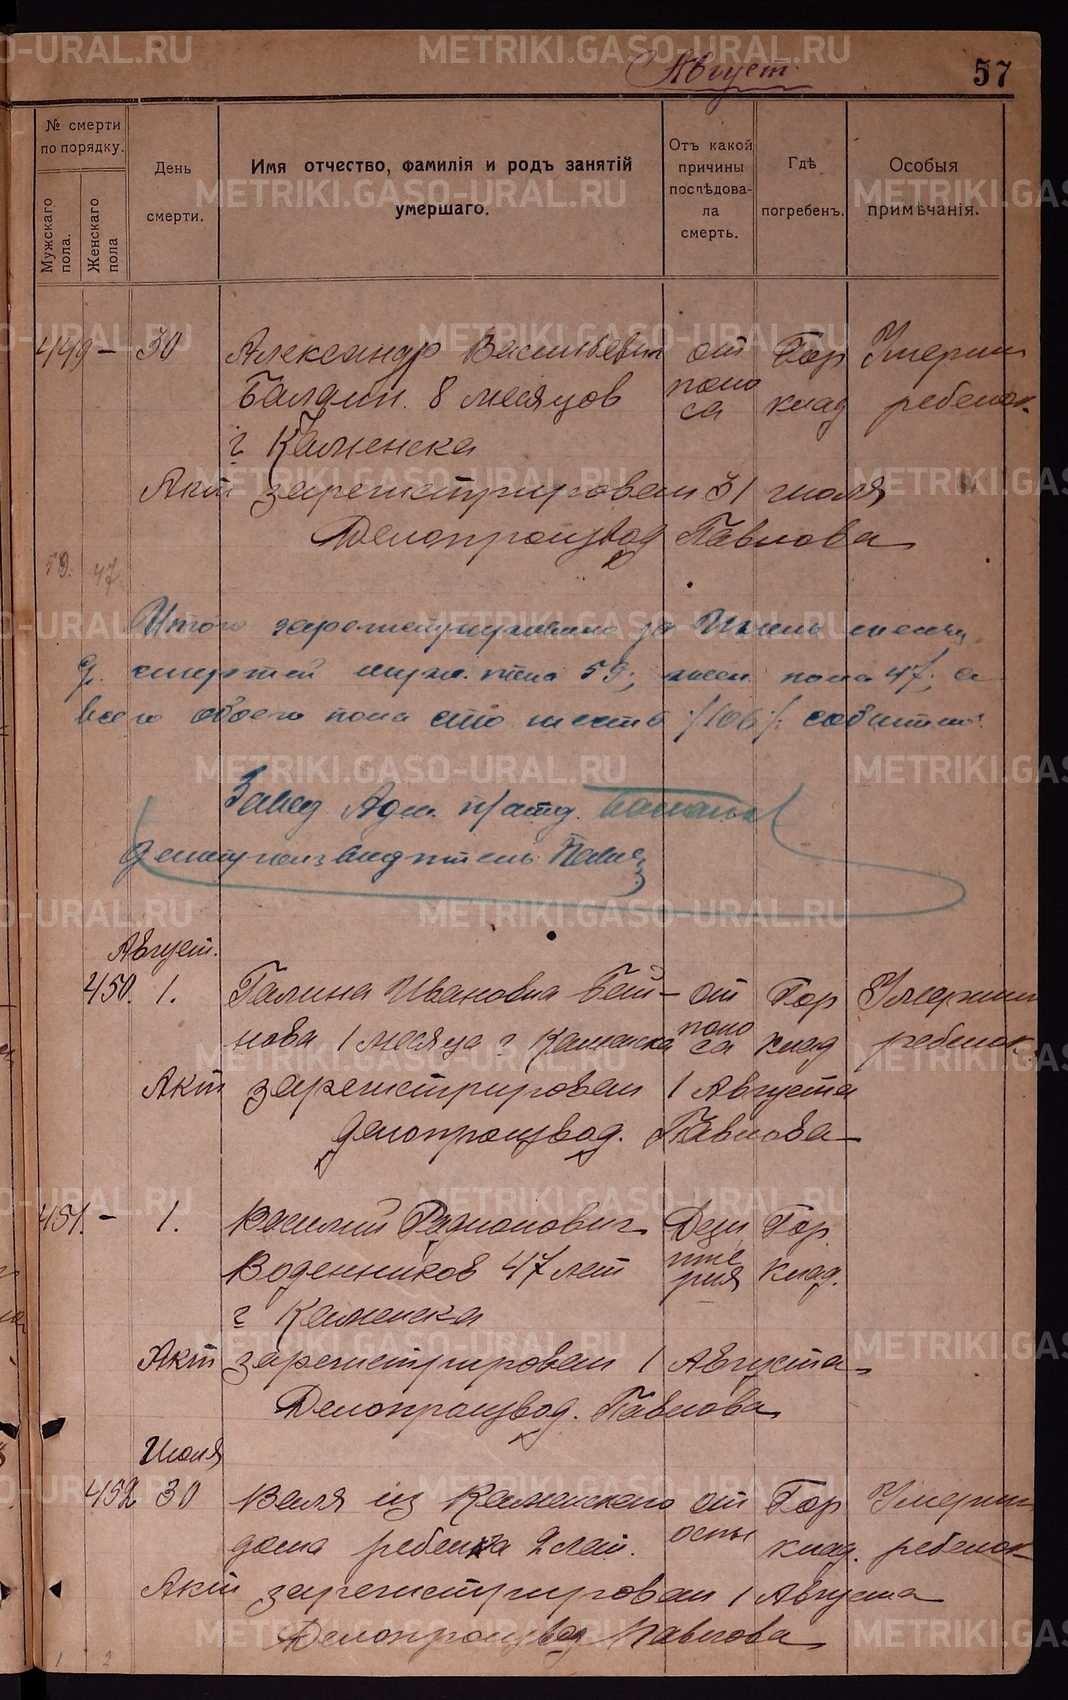 Август.
57
№ смерти по порядку.
Мужскаго пола.
Женскаго пола
День смерти.
Имя отчество, фамилія и родъ занятій умершаго.
Отъ какой причины послѣдовала смерть.
Гдѣ погребенъ.
Особыя примѣчанія.
449 – 30 Александр Васильевич от Гор Умерший
Балдин. 8 месяцов поно са клад ребенок.
г Каменска
Акт зарегистрирован 31 июля
Делопроизвод Павлова
59. 47.
Итого зарегистрировано за Июль месяц
смертей муж. пола 59; жен. пола 47; а
всего обоего пола сто шесть /106/ событий.
Завед Адм. п/отд.
Делопроизводитель Павл
Август.
450. 1. Галина Ивановна Бай- от Гор Умерший
нова 1 месяца г Каменска поно са клад ребенок.
Акт зарегистрирован 1 Августа
Делопроизвод. Павлова
451. – 1. Василий Радионович Дези Гор.
Воденников 47 лет нте рия клад.
г Каменска
Акт зарегистрирован 1 Августа
Делопроизвод. Павлова
Июля
452 30 Валя из Каменского от Гор Умерший
дома ребенка 2 лет. оспы клад. ребенок
Акт зарегистрирован 1 Августа
Делопроизвод Павлова
1 2
METRIKI.GASO-URAL.RU